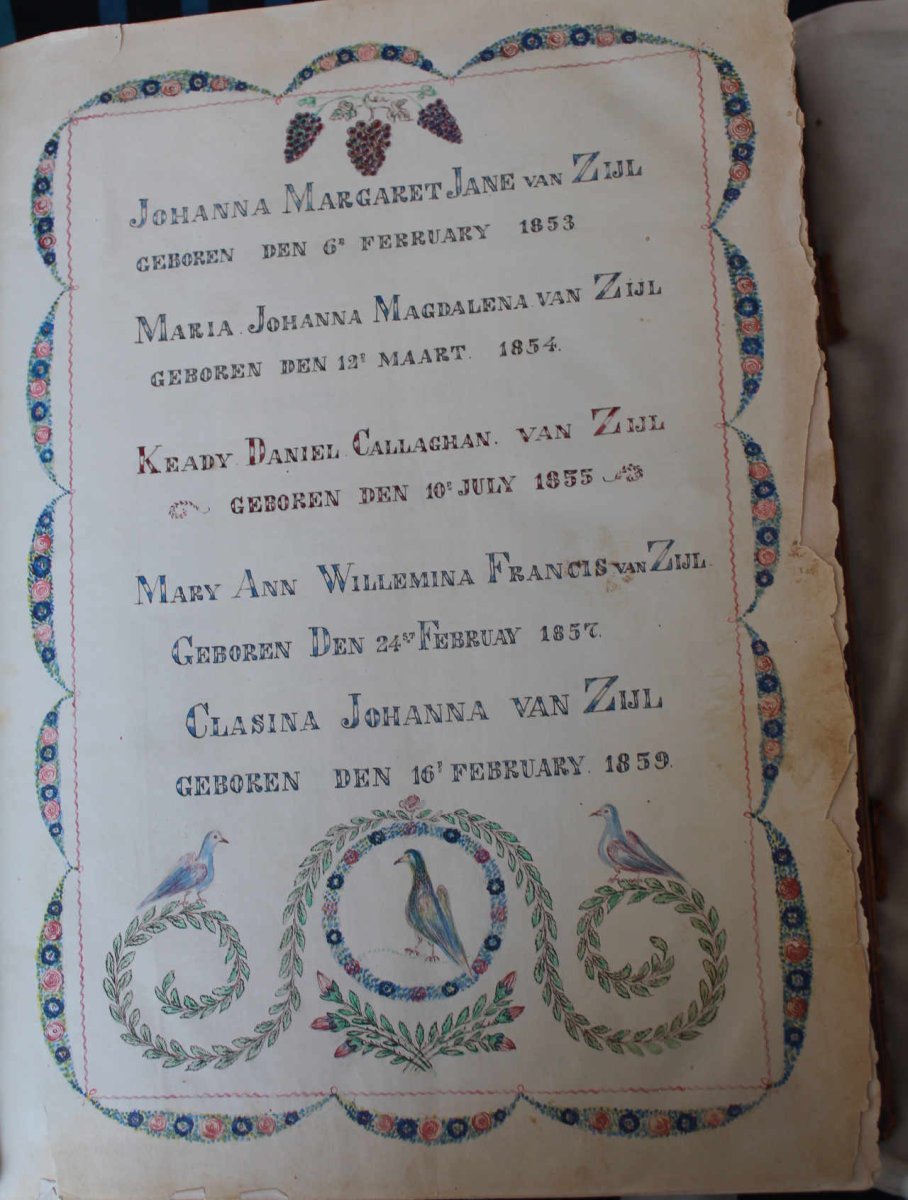 JOHANNA MARGARET JANE VAN ZIJL
GEBOREN DEN 6E FERRUARY 1853
MARIA JOHANNA MAGDALENA VAN ZIJL
GEBOREN DEN 12E MAART. 1854.
KEADY DANIEL CALLAGHAN. VAN ZIJL
GEBOREN DEN 10E JULY 1855
MARY ANN WILLEMINA FRANCIS VAN ZIJL.
GEBOREN DEN 24STE FEBRUAY 1857.
CLASINA JOHANNA VAN ZIJL
GEBOREN DEN 16E FEBRUARY. 1859.